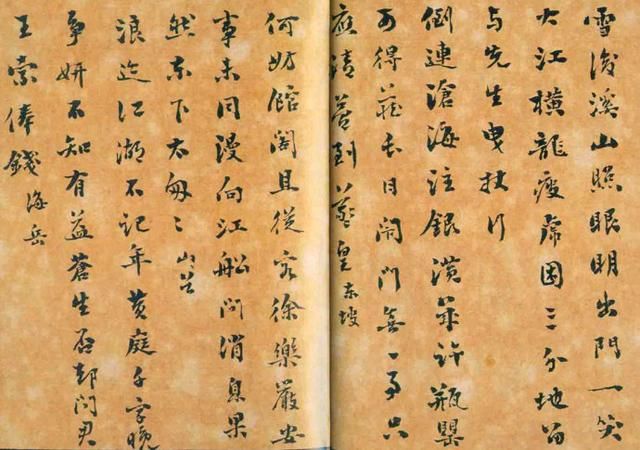 雪後溪山照眼明出門一笑
大江橫龍瘦虎困三分地留
与先生曳杖行
倒連滄海注銀潢許瓶罌
可得藏長日閉門無一事只
應清夢到羲皇 東坡
何妨館閣且從容徐樂嚴安
事未同漫向江船問消息果
然東下太匆〻 山谷
浪迹江湖不記年黃庭千字晚
爭妍不知有益蒼生否卻問君
王索俸錢 海岳